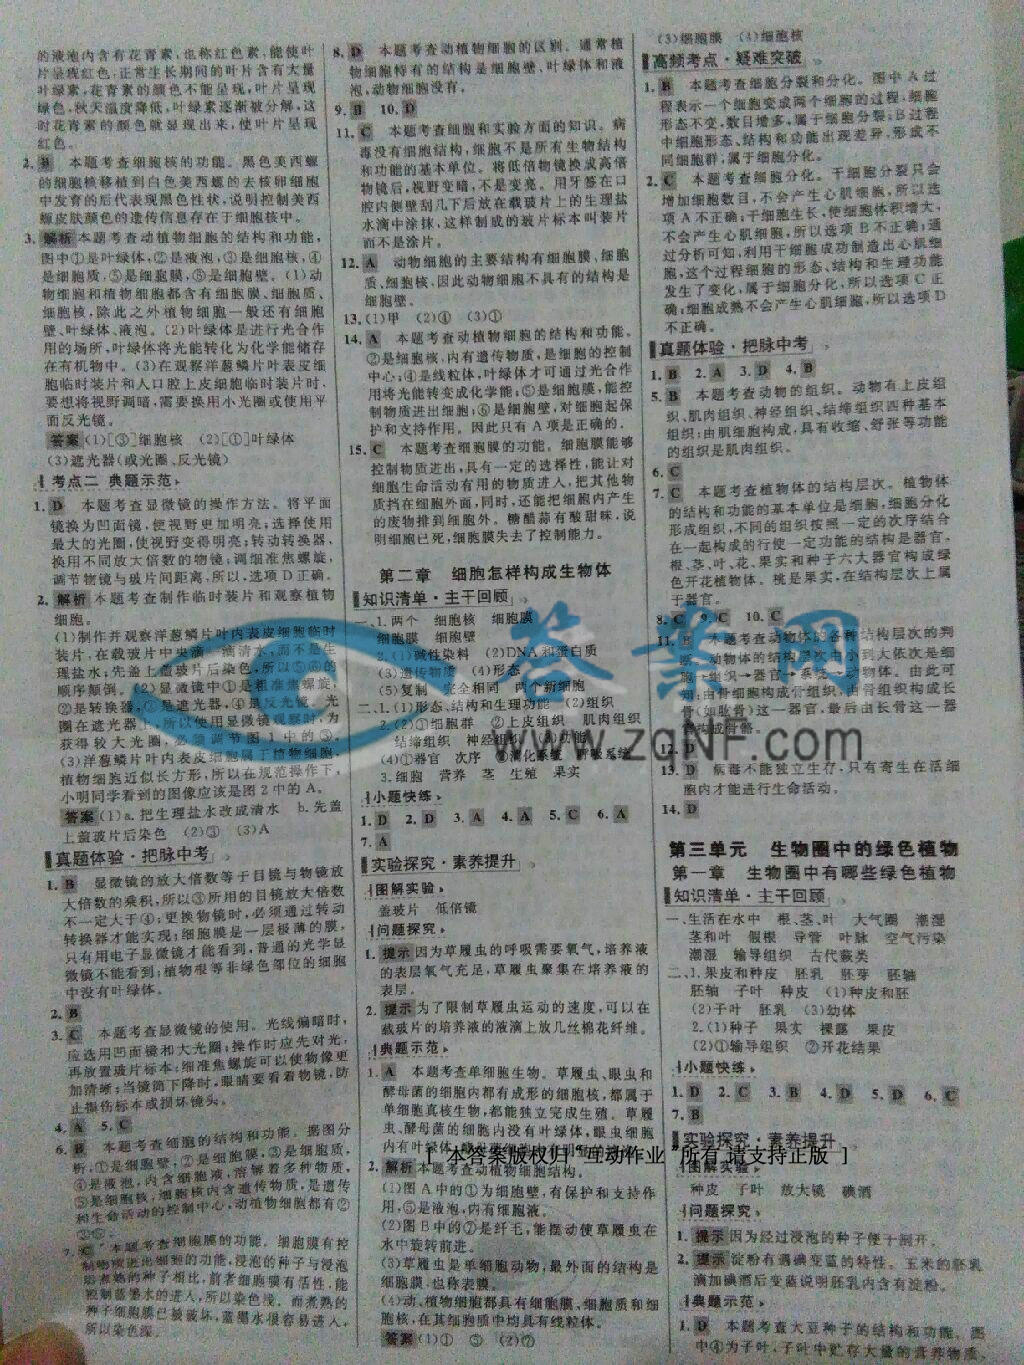 的液泡内含有花青素,也称红色素,能使叶
片呈现红色,正常生长期间的叶片含有大量
叶绿素,花青素的颜色不能呈现,叶片呈现
绿色,秋天温度降低,叶绿素逐渐被分解,这
时花青素的颜色就显现出来,使叶片呈现
红色。
2. B 本题考查细胞核的功能。黑色美西螈
的细胞核移植到白色美西螈的去核卵细胞
中发育的后代表现黑色性状,说明控制美西
螈皮肤颜色的遗传信息存在于细胞核中。
3. 解析 本题考查动植物细胞的结构和功能,
图中①是叶绿体,②是液泡,③是细胞核,④
是细胞质,⑤是细胞膜,⑥是细胞壁。(1)动
物细胞和植物细胞都含有细胞膜、细胞质、
细胞核,除此之外植物细胞一般还有细胞
壁、叶绿体、液泡。(2)叶绿体是进行光合作
用的场所,叶绿体将光能转化为化学能储存
在有机物中。(3)在观察洋葱鳞片叶表皮细
胞临时装片和人口腔上皮细胞临时装片时,
要想将视野调暗,需要换用小光圈或使用平
面反光镜。
答案 (1)[③]细胞核 (2)[①]叶绿体
(3)遮光器(或光圈、反光镜)
考点二 典题示范
1. D 本题考查显微镜的操作方法。将平面
镜换为凹面镜,使视野更加明亮;选择使用
最大的光圈,使视野变得明亮;转动转换器,
换用不同放大倍数的物镜;调细准焦螺旋,
调节物镜与玻片间距离,所以,选项D正确。
2. 解析 本题考查制作临时装片和观察植物
细胞。
(1)制作并观察洋葱鳞片叶内表皮细胞临时
装片,在载玻片中央滴一滴清水,而不是滴
生理盐水;先盖上盖玻片后染色,所以⑤⑥的
顺序颠倒。(2)显微镜中①是粗准焦螺旋,
②是转换器,③是遮光器,④是反光镜。光
圈在遮光器上,所以使用显微镜观察时,为
获得较大光圈,必须调节图1中的③。
(3)洋葱鳞片叶内表皮细胞属于植物细胞,
植物细胞近似长方形,所以在规范操作下,
小明同学看到的图像应该是图2中的A。
答案 (1)a.把生理盐水改成清水 b.先盖
上盖玻片后染色 (2)③ (3)A
真题体验·把脉中考
1. B 显微镜的放大倍数等于目镜与物镜放
大倍数的乘积,所以③所用的目镜放大倍数
不一定大于④;更换物镜时,必须通过转动
转换器才能实现;细胞膜是一层极薄的膜,
只有用电子显微镜才能看到,普通的光学显
微镜不能看到;植物根等非绿色部位的细胞
中没有叶绿体。
2. B
3. C 本题考查显微镜的使用。光线偏暗时,
应选用凹面镜和大光圈;操作时应先对光,
再放置玻片标本;细准焦螺旋可以使物像更
加清晰;当镜筒下降时,眼睛要看着物镜,防
止损伤标本或损坏镜头。
4. A 5. C
6. B 本题考查细胞的结构和功能。据图分
析,①是细胞壁,②是细胞膜,③是细胞质,
④是液泡,内含细胞液,溶解着多种物质,
⑤是细胞核,细胞核内含有遗传物质,是遗传
和生命活动的控制中心,动植物细胞都有②
③⑤。
7. C 本题考查细胞膜的功能。细胞膜有控
制物质进出细胞的功能,浸泡的种子与浸泡
后煮熟的种子相比,前者细胞膜有活性,能
控制蓝墨水的进入,所以染色浅。而煮熟的
种子细胞膜已被破坏,蓝墨水很容易进入,
所以染色深。
8. D 本题考查动植物细胞的区别。通常植
物细胞特有的结构是细胞壁、叶绿体和液
泡,动物细胞没有。
9. B 10. D
11. C 本题考查细胞和实验方面的知识。病
毒没有细胞结构,细胞不是所有生物结构
和功能的基本单位。将低倍物镜换成高倍
物镜后,视野变暗,不是变亮。用牙签在口
腔内侧壁刮几下后放在载玻片上的生理盐
水滴中涂抹,这样制成的玻片标本叫装片
而不是涂片。
12. A 动物细胞的主要结构有细胞膜、细胞
质、细胞核,因此动物细胞不具有的结构是
细胞壁。
13. (1)甲 (2)④ (3)①
14. A 本题考查动植物细胞的结构和功能。
②是细胞核,内有遗传物质,是细胞的控制
中心;④是线粒体,叶绿体才可通过光合作
用将光能转变成化学能;⑤是细胞膜,能控
制物质进出细胞;⑥是细胞壁,对细胞起保
护和支持作用。因此只有A项是正确的。
15. C 本题考查细胞膜的功能。细胞膜能够
控制物质进出,具有一定的选择性,能让对
细胞生命活动有用的物质进入,把其他物
质挡在细胞外面,同时,还能把细胞内产生
的废物排到细胞外。糖醋蒜有酸甜味,说
明细胞已死,细胞膜失去了控制能力。
第二章 细胞怎样构成生物体
知识清单·主干回顾
一、1.两个 细胞核 细胞膜
细胞膜 细胞壁
2.(1)碱性染料 (2)DNA和蛋白质
(3)遗传物质 (4)形态
(5)复制 完全相同 两个新细胞
二、1.(1)形态、结构和生理功能 (2)组织
2.(2)①细胞群 ②上皮组织 肌肉组织
结缔组织 神经组织 (3)功能
(4)①器官 次序 ②消化系统 呼吸系统
3.细胞 营养 茎 生殖 果实
小题快练
1. D 2. D 3. A 4. A 5. C 6. A
7. A
实验探究·素养提升
图解实验
盖玻片 低倍镜
问题探究
1. 提示 因为草履虫的呼吸需要氧气,培养液
的表层氧气充足,草履虫聚集在培养液的
表层。
2. 提示 为了限制草履虫运动的速度,可以在
载玻片的培养液的液滴上放几丝棉花纤维。
典题示范
1. A 本题考查单细胞生物。草履虫、眼虫和
酵母菌的细胞内都有成形的细胞核,都属于
单细胞真核生物,都能独立完成生殖。草履
虫、酵母菌的细胞内没有叶绿体,眼虫细胞
内有叶绿体。
2. 解析 本题考查
(1)图A中的①为细胞壁,有保护和支持作
用,⑤是液泡,内有细胞液。
(2)图B中的⑦是纤毛,能摆动使草履虫在
水中旋转前进。
(3)草履虫是单细胞动物,最外面的结构是
细胞膜,也称表膜。
(4)动、植物细胞都具有细胞膜、细胞质和细
胞核,在其细胞质中均具有线粒体。
答案 (1)① ⑤ (2)⑦
(3)细胞膜 (4)细胞核
高频考点·疑难突破
1. B 本题考查细胞分裂和分化。图中A过
程表示一个细胞变成两个细胞的过程,细胞
形态不变,数目增多,属于细胞分裂;B过程
中细胞形态、结构和功能出现差异,形成不
同细胞群,属于细胞分化。
2. C 本题考查细胞分化。干细胞分裂只会
增加细胞数目,不会产生心肌细胞,所以选
项A不正确;干细胞生长,使细胞体积增大,
不会产生心肌细胞,所以选项B不正确;通
过分析可知,利用干细胞成功制造出心肌细
胞,这个过程细胞的形态、结构和生理功能
发生了变化,属于细胞分化,所以选项C正
确;细胞成熟不会产生心肌细胞,所以选项D
不正确。
真题体验·把脉中考
1. B 2. A 3. D 4. B
5. B 本题考查动物的组织。动物有上皮组
织、肌肉组织、神经组织、结缔组织四种基本
组织;由肌细胞构成,具有收缩、舒张等功能
的组织是肌肉组织。
6. C
7. C 本题考查植物体的结构层次。植物体
的结构和功能的基本单位是细胞,细胞分化
形成组织,不同的组织按照一定的次序结合
在一起构成的行使一定功能的结构是器官,
根、茎、叶、花、果实和种子六大器官构成绿
色开花植物体。桃是果实,在结构层次上属
于器官。
8. C 9. C 10. C
11. B 本题考查动物体的各种结构层次的判
断。动物体的结构层次由小到大依次是细
胞→组织→器官→系统→动物体。由此可
知:由骨细胞构成骨组织,由骨组织构成长
骨(如肱骨)这一器官,最后由长骨这一器官
构成骨骼。
12. D
13. D 病毒不能独立生存,只有寄生在活细
胞内才能进行生命活动。
14. D
第三单元 生物圈中的绿色植物
第一章 生物圈中有哪些绿色植物
知识清单·主干回顾
一、生活在水中 根、茎、叶 大气圈 潮湿
茎和叶 假根 导管 叶脉 空气污染
潮湿 输导组织 古代蕨类
二、1.果皮和种皮 胚乳 胚芽 胚轴
胚轴 子叶 种皮 (1)种皮和胚
(2)子叶 胚乳 (3)幼体
2.(1)种子 果实 裸露 果皮
(2)①输导组织 ②开花结果
小题快练
1. D 2. C 3. B 4. D 5. D 6. C
7. B
实验探究·素养提升
图解实验
种皮 子叶 放大镜 碘酒
问题探究
1. 提示 因为经过浸泡的种子便于剥开。
2. 提示 淀粉有遇碘变蓝的特性。玉米的胚乳
滴加碘酒后变蓝说明胚乳内含有淀粉。
典题示范
1. D 本题考查大豆种子的结构和功能。图
中④为子叶,子叶中贮存大量的营养物质、
答案网
www.zqNF.com
[ 本答案版权归"互动作业"所有,请支持正版 ]